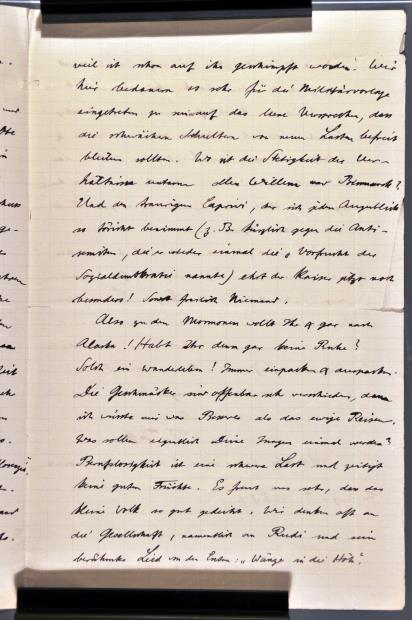 weil ist schon auf ihn geschimpft worden. Wir
hier bedauern es sehr für die Militärvorlage
eingetreten zu sein auf das leere Versprechen, dass
die schwachen Schultern von neuen Lasten befreit
bleiben sollten. Wo ist die Stetigkeit der Ver-
hältnisse unterm alten Willem und Bismarck?
Und den traurigen Caprivi, der sich jeden Augenblick
so töricht benimmt (z. B. kürzlich gegen die Anti-
semiten, die er wieder einmal die "Vorfrucht der
Sozialdemokratie nannte) ehrt der Kaiser jetzt noch
besonders! Sonst freilich Niemand.
Also zu den Mormonen wollt Ihr & gar nach
Alaska! Habt Ihr denn gar keine Ruhe?
Solch ein Wanderleben! Immer einpacken & auspacken.
Die Geschmäcker sind offenbar sehr verschieden, denn
ich wüsste mir was Besseres als das ewige Reisen.
Was sollen eigentlich Deine Jungen einmal werden?
Berufslosigkeit ist eine schwere Last und zeitigt
keine guten Früchte. Es freut uns sehr, dass das
kleine Volk so gut gedeiht. Wir denken oft an
die Gesellschaft, namentlich an Rudi und sein
berühmtes Lied von den Enten: "